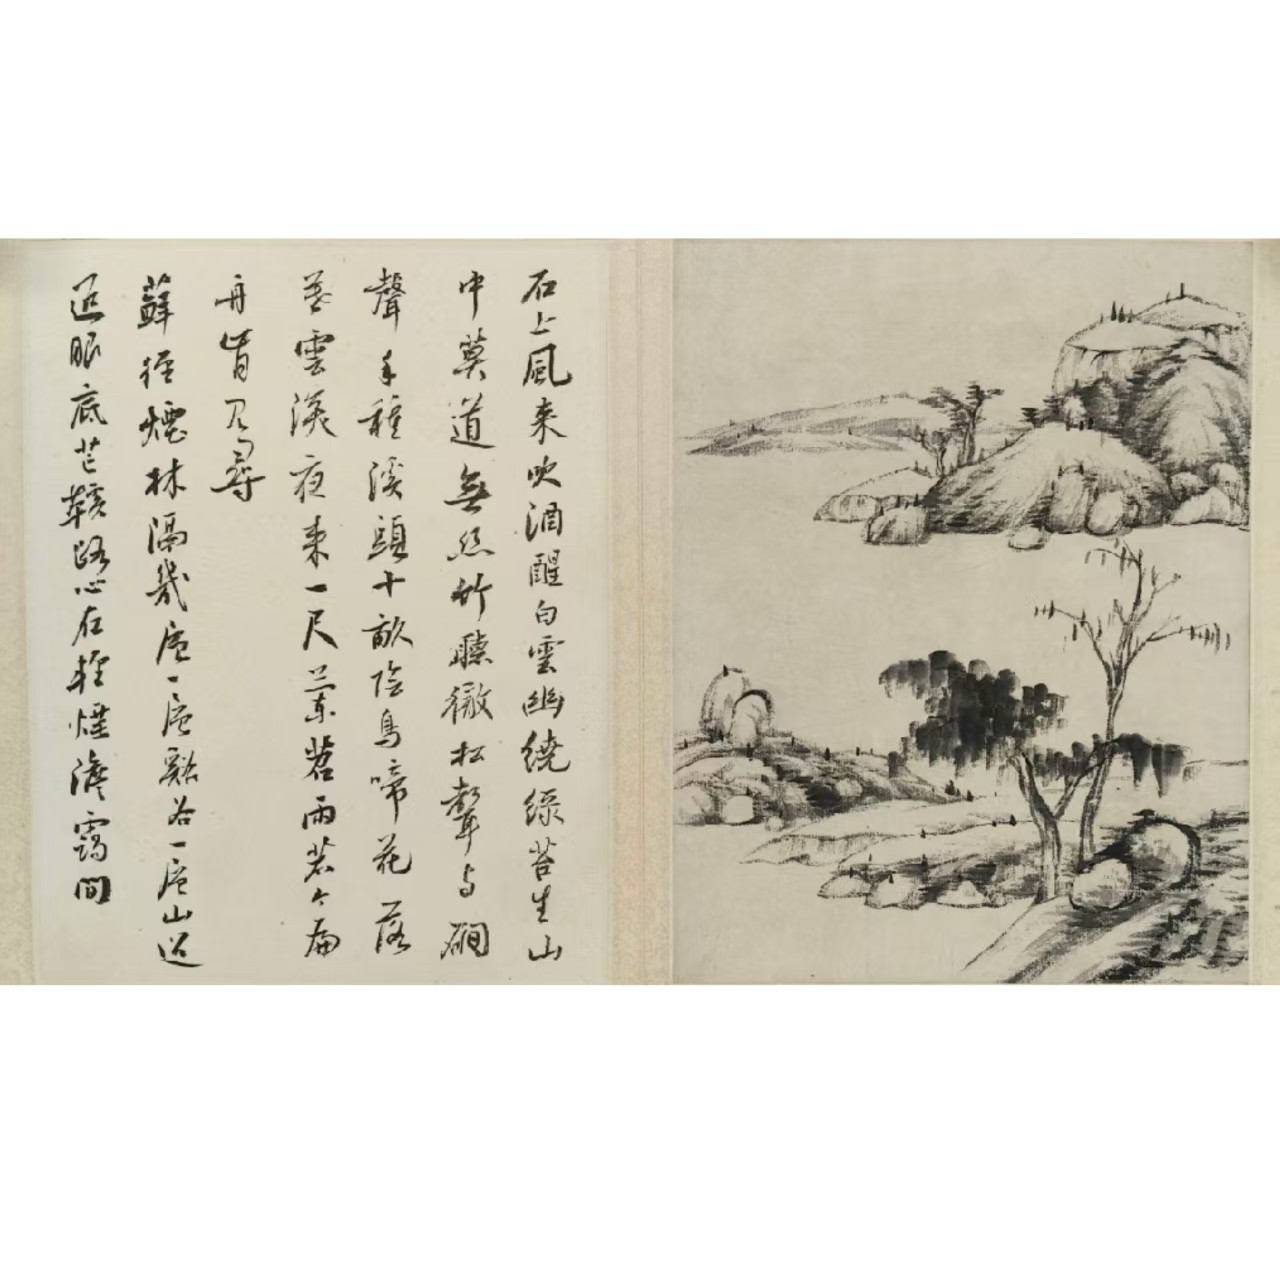 石上風来吹酒醒白雲幽繞綠苔生山
中莫道無絲竹聽徹松聲与磵
聲手種溪頭十畝陰鳥啼花落
雲深夜來一尺蘭苕雨若个扁
舟肯見尋
蘚徑煙林隔幾層一層谿谷一層山近
近眼底芒鞋路心在輕煙澹靄間